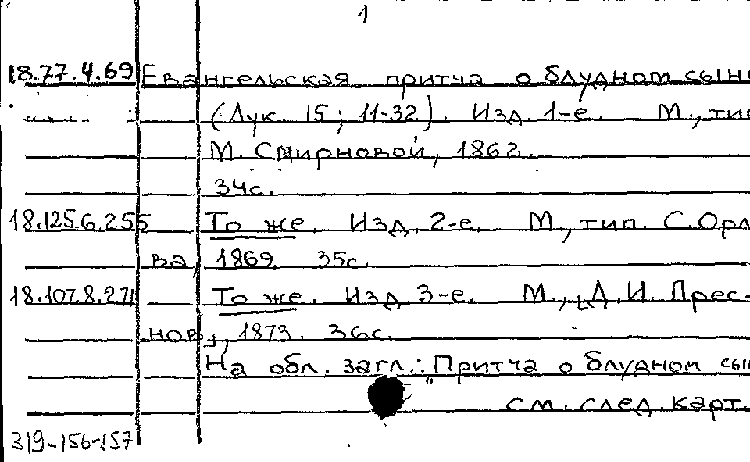 1
18.77.4.69 Евангельская притча о блудном сын
(Лук. 15; 11-32). Изд. 1-е. М., тип
М. Смирновой, 1862.
34с.
18.125.6.255 То же. Изд. 2-е. М., тип. С. Орл
ва, 1869. 35с.
18.107.8.271 То же. Изд. 3-е. М., Д.И. Прес-
нов, 1873. 36с.
На обл. загл.: "Притча о блудном сын
см. след. карт.
319-156-157